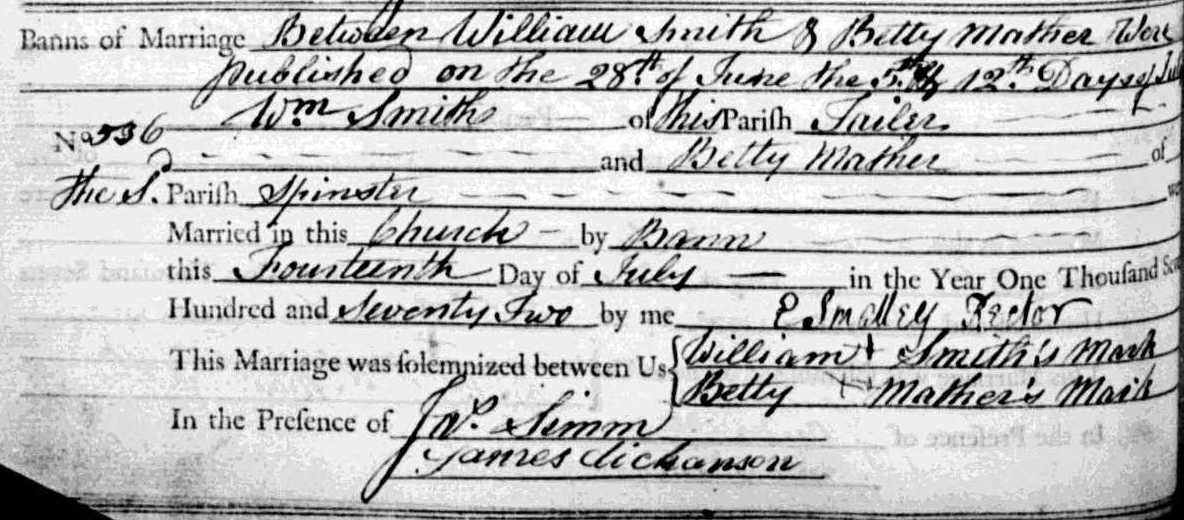 Banns of Marriage Between William Smith & Betty Mather Were
published on the 28th of June the 5th & 12th Days of July
Wm Smith of this Parish Tailer
No 336
and Betty Mather of
the Sd Parish Spinster were
Married in this Church by Bann
this Fourteenth Day of July in the Year One Thousand Seven
Hundred and Seventy Two by me E Smalley Rector
This Marriage was solemnized between Us William + Smith's Mark
Betty + Mather's Mark
In the Presence of Jno. Simm
James dickanson